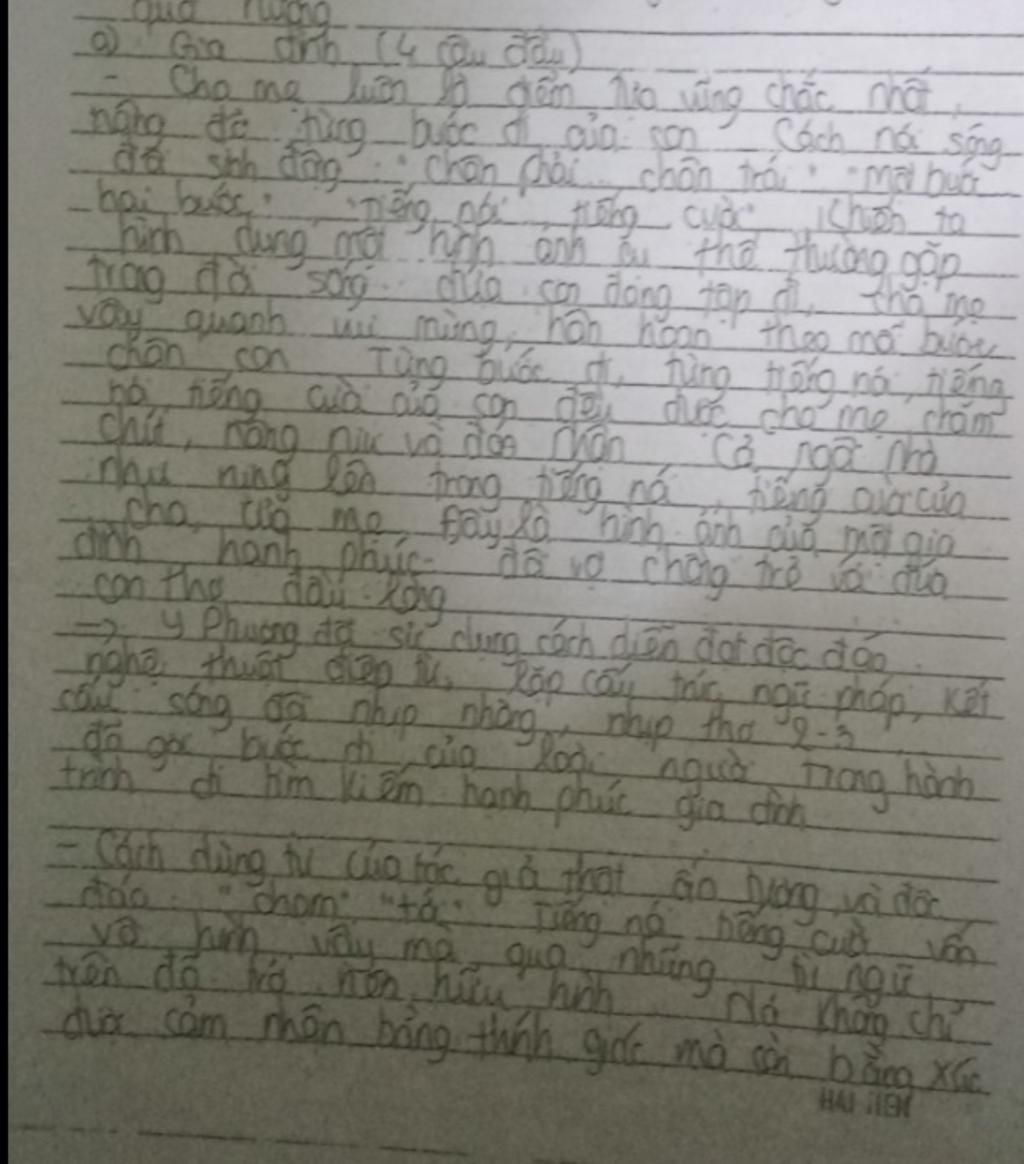 quê hương
a) Gia đình (4 câu đầu)
- Cha mẹ luôn là điểm tựa vững chắc nhất,
nâng đỡ từng bước đi của con. Cách nói sóng
đôi sinh động: "chân phải... chân trái" "một bước
hai bước", "tiếng nói tiếng cười" khiến ta
hình dung một hình ảnh cụ thể thường gặp
trong đời sống: đứa con đang tập đi, cha mẹ
vây quanh vui mừng, hân hoan theo mỗi bước
chân con. Từng bước đi, từng tiếng nói, tiếng
nói, tiếng cười của con đều được cha mẹ chăm
chút, nâng niu và đón nhận. Cả ngôi nhà
như rung lên trong tiếng nói, tiếng cười của
cha, của mẹ. Đây là hình ảnh của một gia
đình hạnh phúc: đôi vợ chồng trẻ với đứa
con thơ đầu lòng
-> Y Phương đã sử dụng cách diễn đạt độc đáo,
nghệ thuật điệp từ, lặp cấu trúc ngữ pháp, kết
cấu sóng đôi nhịp nhàng, nhịp thơ 2-3,
đã gợi bước đi của loài người trong hành
trình đi tìm kiếm hạnh phúc gia đình
- Cách dùng từ của tác giả thật ấn tượng và độc
đáo: "chạm" "tới". Tiếng nói tiếng cười vốn
vô hình vậy mà qua những từ ngữ
trên đã trở nên hữu hình. Nó không chỉ
được cảm nhận bằng thính giác mà còn bằng xúc
HAI TIEN